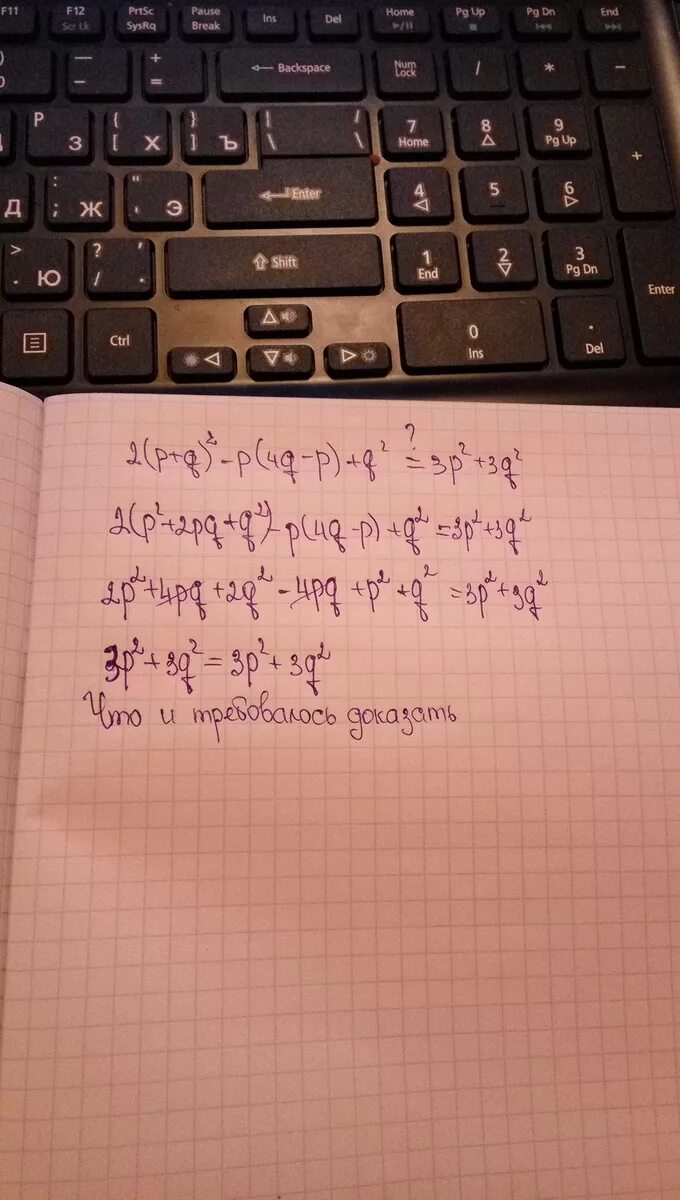 F11 F12 PrtSc Pause Ins Del Home Pg Up Pg Dn End
Scr Lk SysRq Break
) — + ⟵ Backspace Num Lock / * −
0 − =
Р З { [ Х } ] Ъ | \ / \ 7 Home 8 9 Pg Up +
Д : ; Ж " ' Э Enter 4 5 6
> . Ю ? / , . Shift 1 End 2 3 Pg Dn Enter
Ctrl 0 Ins . Del
2(p+q)² − p(4q−p) + q² ≟ 3p² + 3q²
2(p²+2pq+q²) − p(4q−p) + q² = 3p² + 3q²
2p² + 4pq + 2q² − 4pq + p² + q² = 3p² + 3q²
3p² + 3q² = 3p² + 3q²
Что и требовалось доказать